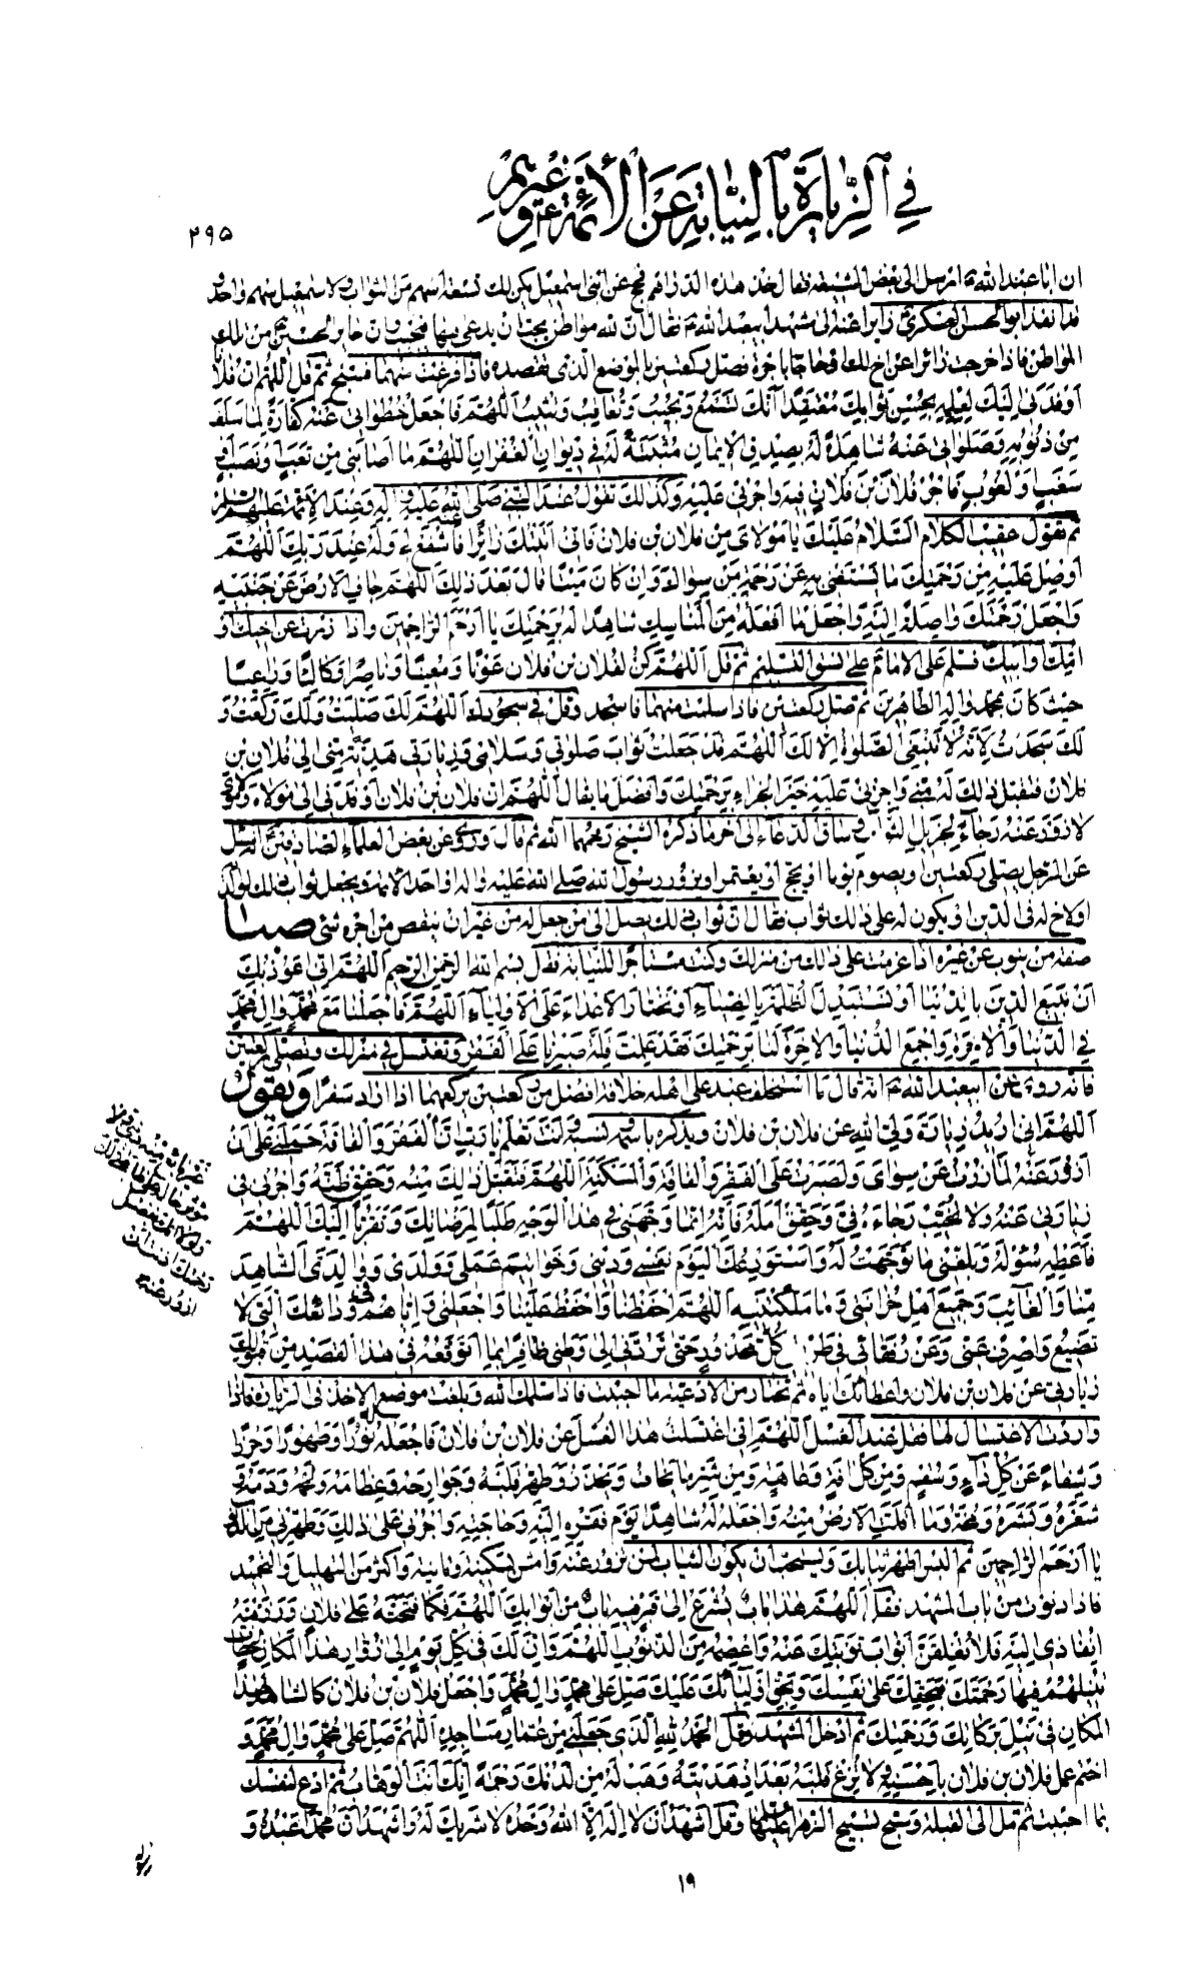 في الزيارة بالنيابة عن الأئمة ع وغيرهم
٢٩٥
ان ابا عبد الله ع ارسل الى بعض الشيعة فقال خذ هذه الدراهم فحج عن ابنى اسمعيل يكن لك تسعة اسهم من الثواب ولاسمعيل سهم واحد
قد انفذ ابو الحسن العسكرى ع زايرا عنه الى مشهد ابيعبد الله ع فقال ان لله مواطن يحب ان يدعى فيها فيجيب وان حاير الحسين ع من تلك
المواطن فاذا خرجت زائرا عن اخ لك او حاجا باجرة فصل ركعتين بالموضع الذى تقصده فاذا فرغت منهما فسبح ثم قل اللهم ان فلانا
اوفدنى اليك لعلمه بحسن ثوابك معتقدا انك تسمع وتجيب وتعاقب وتثيب اللهم فاجعل خطواتى عنه كفارة لما سلف
من ذنوبه وصلواتى عنه شاهدة له بصدق الايمان مثبتة له فى ديوان الغفران اللهم ما اصابنى من تعب او نصب او
سغب او لغوب فاجر فلان بن فلان فيه واجرنى عليه وكذلك تقول عند النبى صلى الله عليه واله وعند الائمة عليهم السلام
ثم تقول عقيب الكلام السلام عليك يا مولاى من فلان بن فلان فانى اتيتك زائرا فاشفع لى وله عند ربك اللهم
اوصل عليه من رحمتك ما يستغنى به عن رحمة من سواك وان كان ميتا قال بعد ذلك اللهم جاف الارض عن جنبيه
واجعل رحمتك واصلة اليه واجعل ما افعله من المناسك شاهدا له برحمتك يا ارحم الراحمين واذا زرت عن اخيك او
امك وابيك فسلم على الامام ع على نسق التسليم ثم قل اللهم كن لفلان بن فلان عونا ومعينا وناصرا وكالئا وراعيا
حيث كان بمحمد واله الطاهرين ثم تصلى ركعتين فاذا سلمت منهما فاسجد وقل فى سجودك اللهم لك صليت ولك ركعت و
لك سجدت لانه لا تنبغى الصلوة الا لك اللهم قد جعلت ثواب صلوتى وسلامى وزيارتى هدية منى الى فلان بن
فلان فتقبل ذلك له منى واجرنى عليه خير الجزاء برحمتك وافضل ما يقال اللهم ان فلان بن فلان اوفدنى الى مولاه ومولاى
لازور عنه رجاء لجزيل الثواب وساق الدعاء الى اخر ما ذكره الشيخ رحمهما الله ثم قال وروى عن بعض العلماء الصادقين انه سئل
عن الرجل يصلى ركعتين او يصوم يوما او يحج او يعتمر او يزور رسول الله صلى الله عليه واله او احد الائمة ع ويجعل ثواب ذلك لوالديه
او لاخ له فى الدين او يكون له على ذلك ثواب فقال ان ثواب ذلك يصل الى من جعل له من غير ان ينقص من اجره شئ
صفة من ينوب عن غيره اذا عزمت على ذلك من منزلك وكنت مستاجرا للنيابة فقل بسم الله الرحمن الرحيم اللهم انى اعوذ بك
ان نبيع الدين بالدنيا او نستبدل الظلمة بالضياء او نختار الاعداء على الاولياء اللهم فاجعلنا مع محمد وال محمد
فى الدنيا والاخرة واجمع الدنيا والاخرة لنا برحمتك فقد علمت قلة صبرنا على الفقر وتغتسل فى منزلك وتصلى ركعتين
فانه روى عن ابيعبد الله ع انه قال ما استخلف عبد على اهله خلافة افضل من ركعتين يركعهما اذا اراد سفرا ويقول
اللهم انى اريد زيارة ولى الله عن فلان بن فلان ويذكره باسمه ونسبه وانت تعلم يا رب ان الفقر والفاقة حملنى على ان
ازور عنه لما رزئت عن سواى ولصبرت على الفقر والفاقة والمسكنة اللهم فتقبل ذلك منه وحقق ظنه واجرنى فى
زيارتى عنه ولا تخيب رجاءه فى وحقق امله فانه انما وجهنى فى هذا الوجه طلبا لمرضاتك وتقربا اليك اللهم
فاعطه سؤله وبلغنى ما توجهت له واستودعك اليوم نفسى ودينى وخواتيم عملى وولدى ووالدى الشاهد
منا والغائب وجميع اهل حزانتى وما ملكتنيه اللهم احفظنا واحفظ علينا واجعلنى واياهم فى ودائعك التى لا
تضيع واصرف عنى وعن رفقائى فى طريقى كل محذور حتى تردنى الى وطنى ظافرا بما اتوقعه فى هذا القصد من قبولك
زيارتى عن فلان بن فلان واعطائك اياه ثم تختار من الادعية ما احببت فاذا سلمك الله وبلغت موضع الاخذ فى الزيارة فاذا
اردت الاغتسال لها فقل عند الغسل اللهم انى اغتسلت هذا الغسل عن فلان بن فلان فاجعله نورا وطهورا وحرزا
وشفاء عن كل داء وسقم ومن كل افة وعاهة ومن شر ما يخاف ويحذر وطهر قلبه وجوارحه وعظامه ولحمه ودمه و
شعره وبشره ومخه وما اقلت الارض منه واجعله له شاهدا يوم فقره اليه وحاجته واجرنى على ذلك وطهرنى من الذنوب
يا ارحم الراحمين ثم البس اطهر ثيابك ويستحب ان يكون الثياب لمن تزور عنه وامش بسكينة وتانية واكثر من التهليل والتحميد
فاذا دنوت من باب المشهد فقل اللهم هذا باب يشرع الى قبر فيه باب من ابوابك اللهم فكما فتحته على فلان ورزقته
انفاذى اليه فلا تغلقن ابواب توبتك عنه واعصمه من الذنوب اللهم وان لك فى كل يوم الى زوار هذا المكان
تنيلهم فيها رحمتك فبحقك على نفسك وبحق اوليائك عليك صل على محمد وال محمد واجعل فلان بن فلان كالشاهد لهذا
المكان فى نيل بركاتك ورحمتك ثم ادخل المشهد وقل الحمد لله الذى جعلنى من عمار مساجده اللهم صل على محمد وال محمد و
اختم عمل فلان بن فلان باحسنه ولا تزغ قلبه بعد اذ هديته وهب له من لدنك رحمة انك انت الوهاب ثم ادع لنفسك
بما احببت ثم مل الى القبلة وسبح تسبيح الزهراء عليها السلام وقل اشهد ان لا اله الا الله وحده لا شريك له واشهد ان محمدا عبده و
ازور عنه
١٩